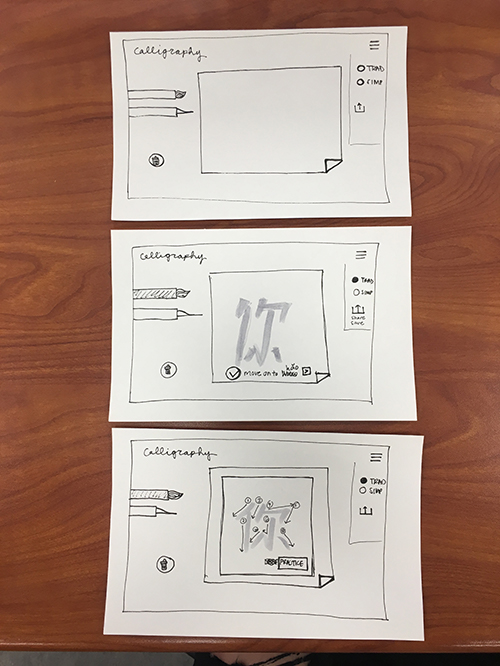 Calligraphy
TRAD
SIMP
Calligraphy
TRAD
SIMP
SHARE
SAVE
你
move on to
Calligraphy
TRAD
SIMP
你
PRACTICE